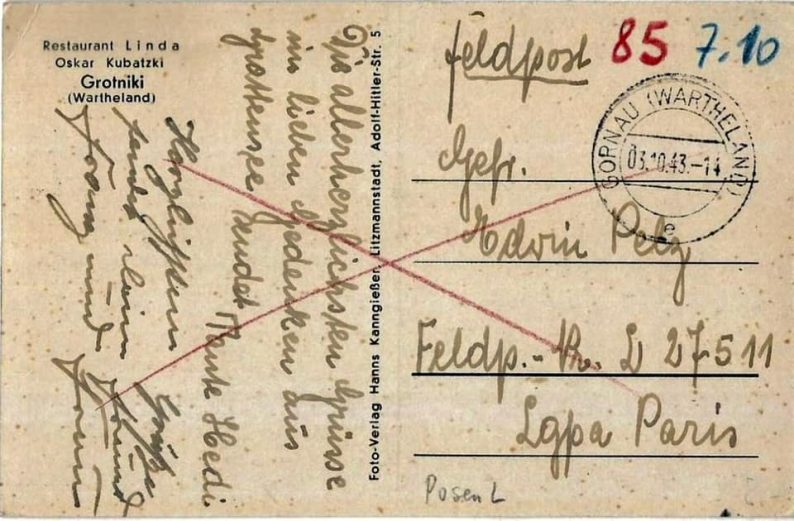 Restaurant Linda
Oskar Kubatzki
Grotniki
(Wartheland)
Die allerherzlichsten Grüsse
im lieben Gedenken aus
sendet Tante Hedi
Herzlichsten Grüße
sendet Dein Freund
Franz und Frau
Foto-Verlag Hanns Kanngießer, Litzmannstadt, Adolf-Hitler-Str. 5
Feldpost 85 7.10
GORNAU (WARTHELAND)
03.10.43.-14
e
Gefr.
Edwin Pelz
Feldp.-Nr. L 27511
Lgpa Paris
Posen L